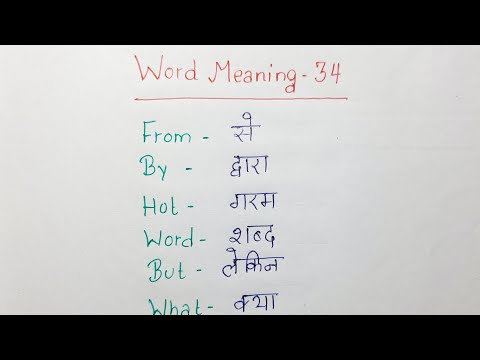 Word Meaning - 34
From - से
By - द्वारा
Hot - गरम
Word - शब्द
But - लेकिन
What - क्या